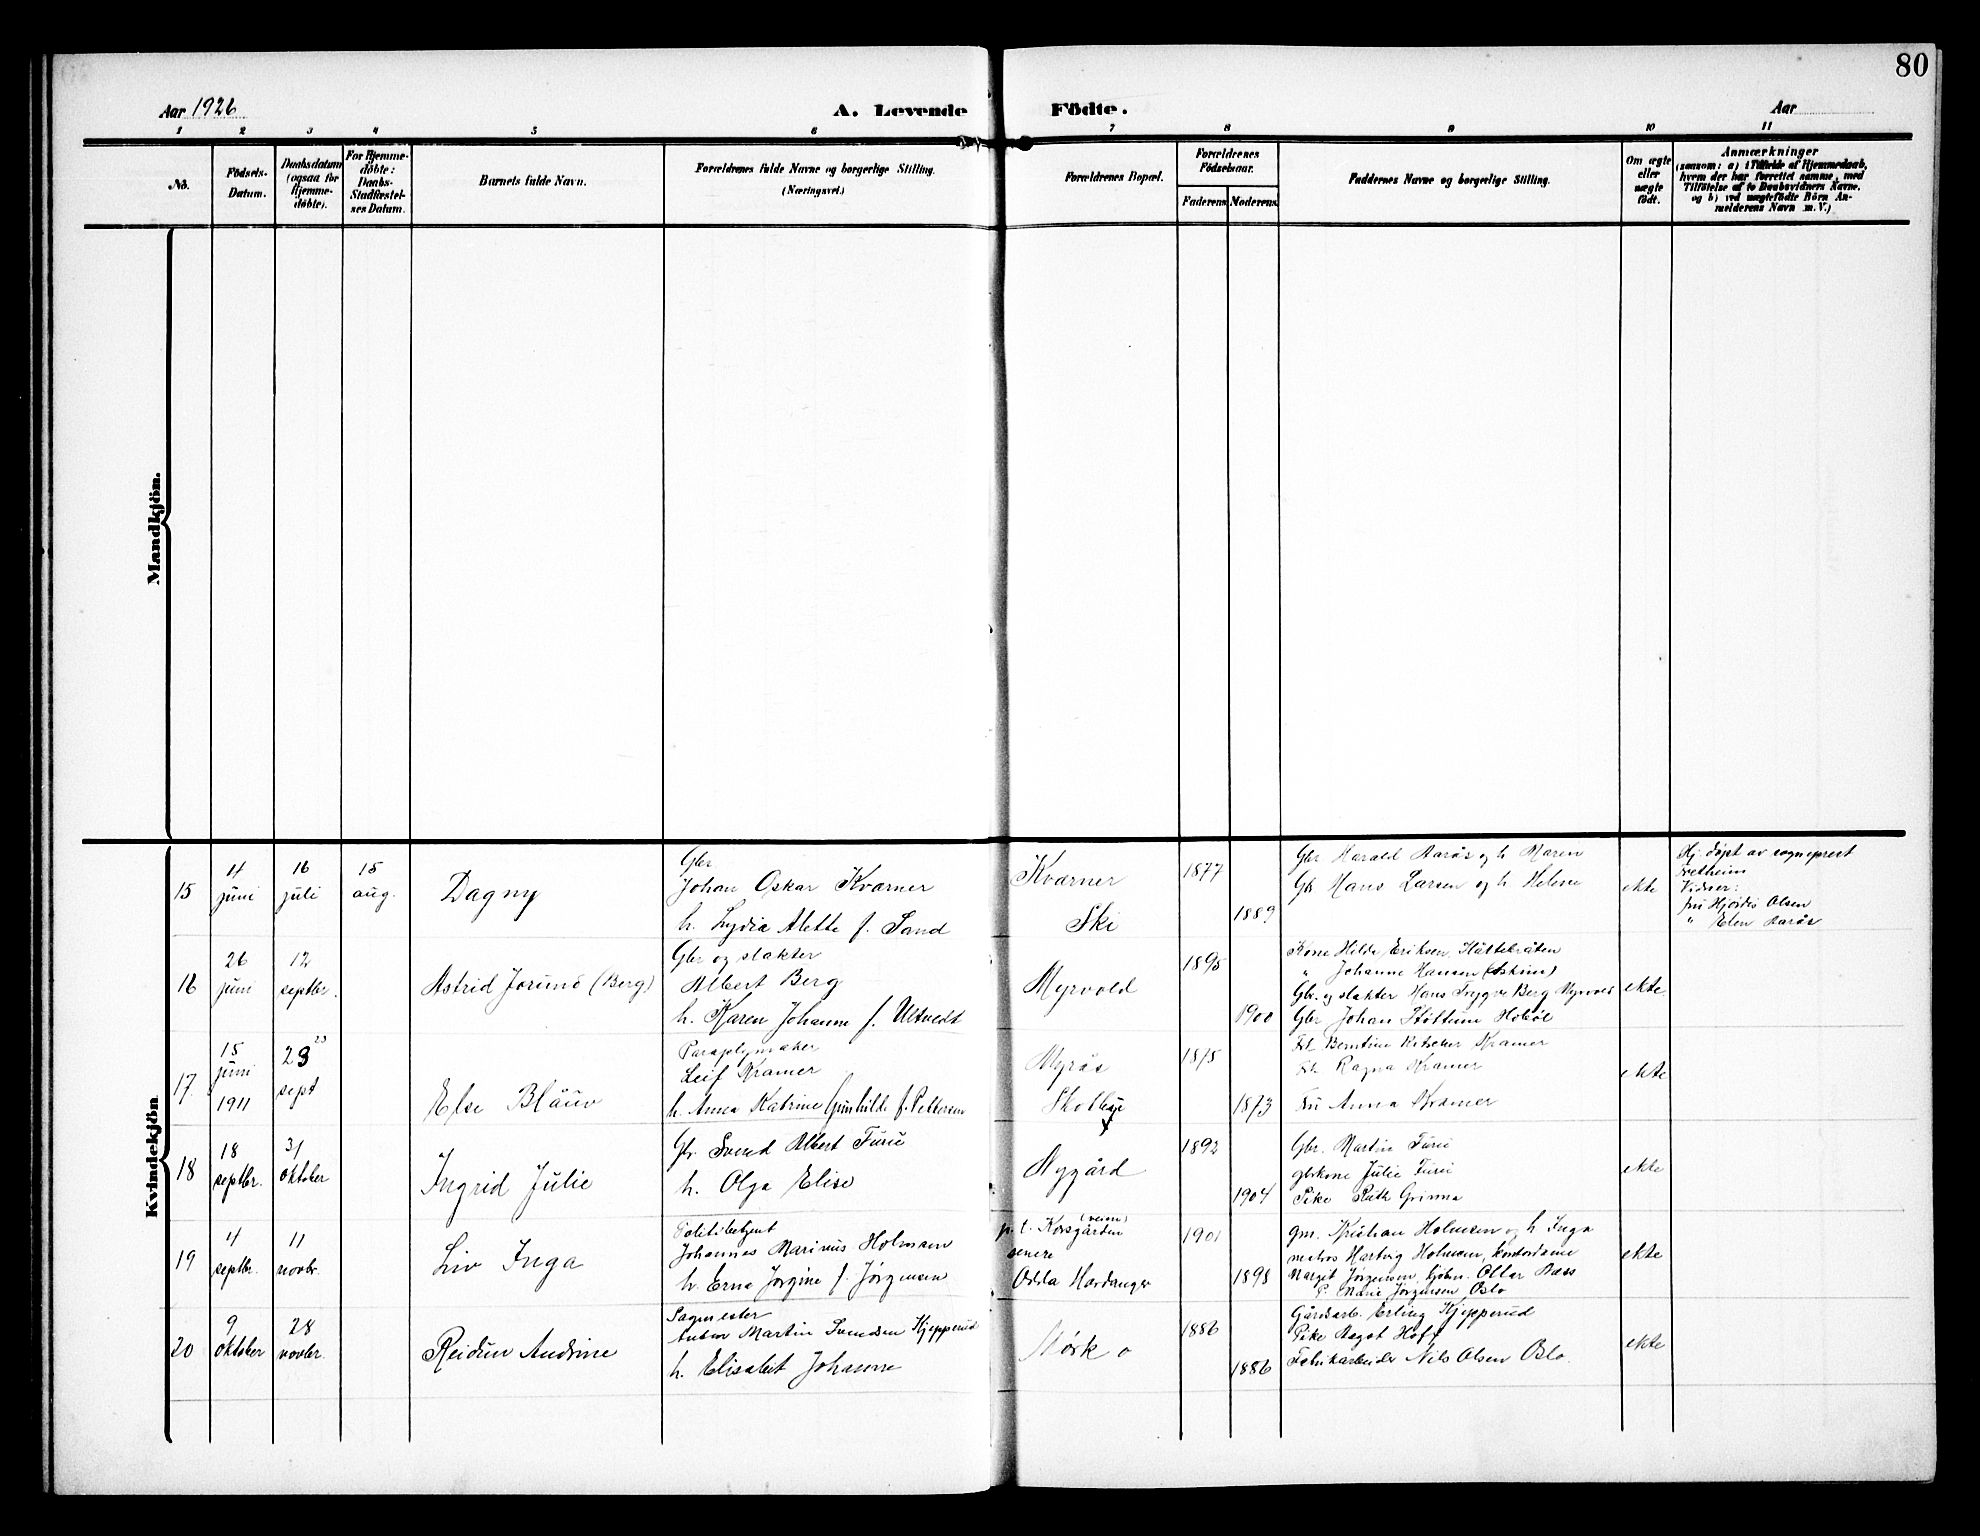 80
Aar 1926
A. Levende Födte.
Aar
1 2 3 4 5 6 7 8 9 10 11
No.
Födsels-Datum.
Daabsdatum (ogsaa for Hjemme-döbte).
For Hjemme-döbte: Daabs-Stadfæstel-ses Datum.
Barnets fulde Navn.
Forældrenes fulde Navne og borgerlige Stilling. (Næringsvei.)
Forældrenes Bopæl.
Forældrenes Födselsaar.
Faderens Moderens
Faddernes Navne og borgerlige Stilling.
Om ægte eller uægte födt.
Anmærkninger
(saasom: a) i Tilfælde af Hjemmedaab, hvem der har forrettet samme, med Tilföielse af to Daabsvidners Navne, og b) ved uægtefödte Börn An-melderens Navn m. V.)
Mandkjön.
Kvindekjön
15
4 juni
16 juli
15 aug.
Dagny
Gbr
Johan Oskar Kvarner
h. Lydia Alette f. Sand
Kvarner
Ski
1877
1889
Gbr Harald Aarös og h. Maren
Gb Hans Larsen og h. Helene
ekte
Hj. döpt av sogneprest
Vidner:
fru Hjördis Olsen
" Elen Aarös
16
26 juni
12 septbr.
Astrid Jorund (Berg)
Gbr og slakter
Albert Berg
h. Karen Johanne f. Ultvedt
Myrvold
1895
1900
Kone Hilda Eriksen
" Johanne Hansen (Askim)
Gbr. og slakter Hans Trygve Berg Myrvold
Gbr Johan Hobøl
ekte
17
15 juni 1911
23 sept
23
Else Blauw
Paraplymaker
Leif Kramer
h. Anna Katrine Gunhilde f. Pettersen
Myrås
1875
1873
Frk Kramer
Frk. Ragna Kramer
Fru Anna Kramer
ekte
18
18 septbr.
31 oktober
Ingrid Julie
Gbr Svend Albert Furu
h. Olga Elise
Nygård
1892
1904
Gbr. Martin Furu
gbrkone Julie Furu
Pike Ruth Grinna
ekte
19
4 septbr.
11 novbr.
Liv Inga
Politibetjent
Johannes Marinus Holmsen
h. Erna Jørgine f. Jørgensen
p. t. Korsgården (veien)
senere
Odda Hardanger
1901
1898
gm. Kristian Holmsen og h Inga
matros Hartvig Holmsen, kontordame
Margit Jörgensen, Ottar Næss
P. Marie Jörgensen, Oslo
ekte
20
9 oktober
28 novbr.
Reidun Andrine
Sagmester
Anton Martin Svendsen Kjepperud
h. Elisabet Johanne
1886
1886
Gårdsarb. Erling Kjepperud
Pike Dagot Hoff
Fabrikarbeider Nils Olsen Oslo.
ekte